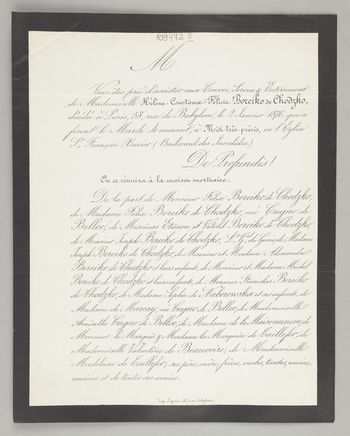 109472 III
M
Vous êtes prié d'assister aux Convoi, Service & Enterrement
de Mademoiselle Hélène-Constance-Félicie Boreïko de Chodźko,
décédée à Paris, 58, rue de Babylone, le 2 Janvier 1876, qui se
feront le Mardi 4 courant, à Midi très-précis, en l'Eglise
St François-Xavier (Boulevard des Invalides)
De Profundis!
On se réunira à la maison mortuaire.
De la part de Monsieur Félix Boreïko de Chodźko,
de Madame Félix Boreïko de Chodźko, née Cugno de
Belloc, de Messieurs Etienne et Witold Boreïko de Chodźko,
de Monsieur Joseph Boreïko de Chodźko, de Madame
Joseph Boreïko de Chodźko, de Monsieur et Madame Alexandre
Boreïko de Chodźko et leurs enfants, de Monsieur et Madame Michel
Boreïko de Chodźko et leurs enfants, de Monsieur Stanislas Boreïko
de Chodźko, de Madame Sophie de et ses enfants, de
Madame de née Cugno de Belloc, de Mademoiselle
Cugno de Belloc, de Madame de la Maisonneuve, de
Monsieur le Marquis & Madame la Marquise de de
Mademoiselle Valentine de Beauvoir, de Mademoiselle
Madeleine de ses père, mère, frères, oncles, tantes, cousins,
cousines et de toutes ses amies.